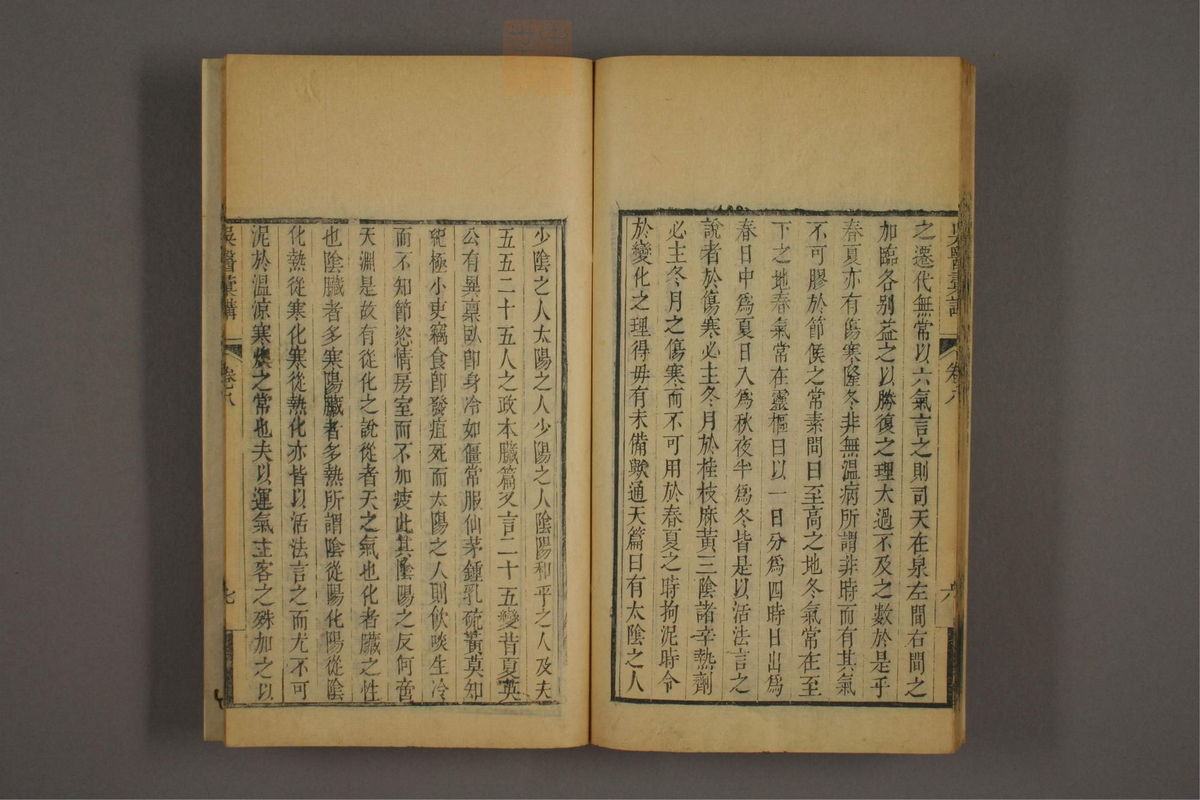 吳醫彙講 卷八 六
之遷代無常以六氣言之則司天在泉左間右間之
加臨各别益之以勝復之理太過不及之數於是乎
春夏亦有傷寒隆冬非無溫病所謂非時而有其氣
不可膠於節候之常素問曰至高之地冬氣常在至
下之地春氣常在靈樞曰以一日分爲四時日出爲
春日中爲夏日入爲秋夜半爲冬皆是以活法言之
說者於傷寒必主冬月於桂枝麻黃三陰諸辛熱劑
必主冬月之傷寒而不可用於春夏之時拘泥時令
於變化之理得毋有未備歟通天篇曰有太陰之人
少陰之人太陽之人少陽之人陰陽和平之人及夫
五五二十五人之政本臟篇又言二十五變昔夏英
公有異稟臥卽身冷如僵常服仙茅鍾乳硫黃莫知
紀極小吏竊食卽發疽死而太陽之人則飲啖生冷
而不知節恣情房室而不加疲此其陰陽之反何啻
天淵是故有從化之說從者天之氣也化者臟之性
也陰臟者多寒陽臟者多熱所謂陰從陽化陽從陰
化熱從寒化寒從熱化亦皆以活法言之而尤不可
泥於溫涼寒燠之常也夫以運氣主客之殊加之以
吳醫彙講 卷八 七